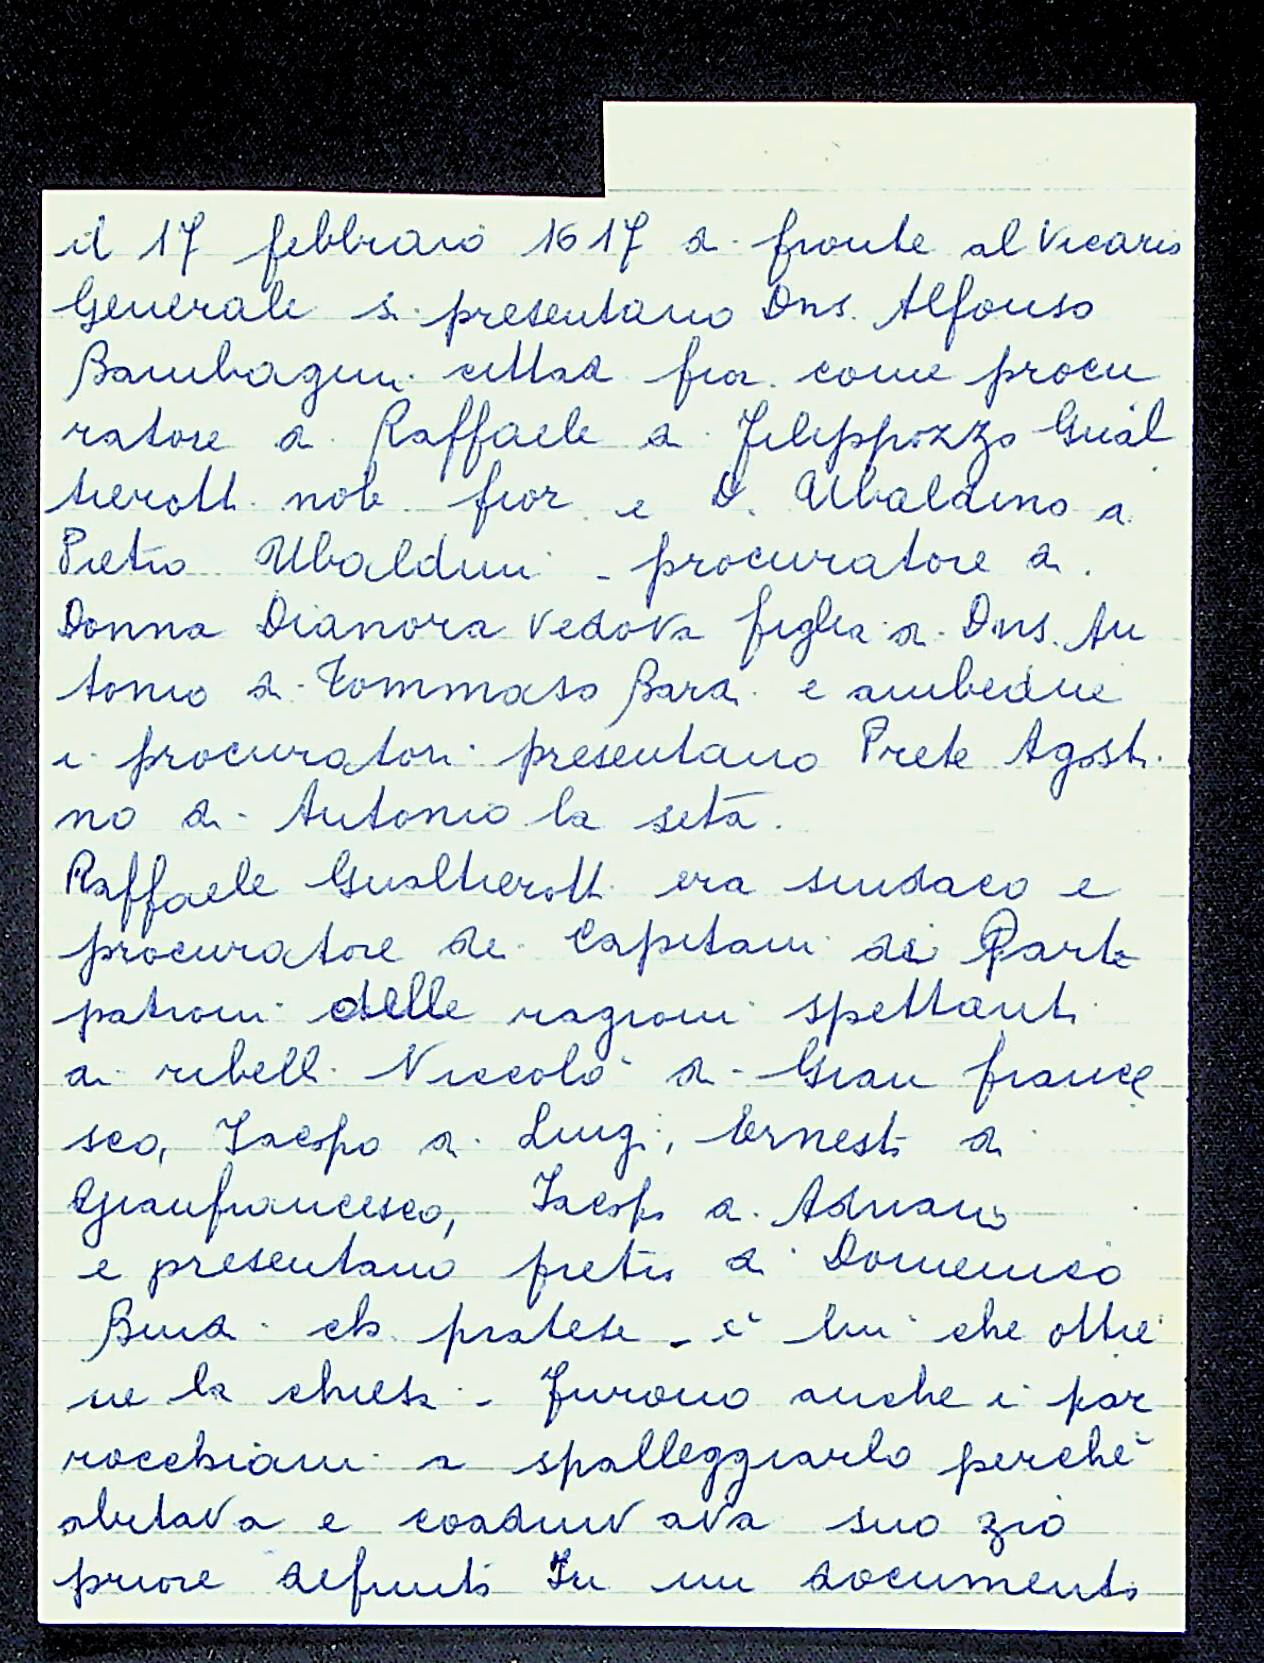 il 17 febbraio 1617 di fronte al Vicario
Generale si presentano Dns. Alfonso
Bambagini cittad fior. come procu
ratore di Raffaele di Filippozzo Gual
tierotti nob fior e D. Ubaldino di
Pietro Ubaldini - procuratore di
Donna Dianora vedova figlia di Dns. An
tonio di Tommaso Bardi e ambedue
i procuratori presentano Prete Agosti
no di Antonio la seta.
Raffaele Gualtierotti era sindaco e
procuratore dei Capitani di Parte
patroni delle ragioni spettanti
ai ribelli Niccolò di Gian france
sco, Iacopo di Luigi, Ernesti di
Gianfrancesco, Iacopo di Adriano
e presentano pietro di Domenico
Buidi ch. pratese - è lui che otte
ne la chiesa - Furono anche i par
rocchiani a spalleggiarlo perchè
abitava e coadiuvava suo zio
priore defunto In un documento